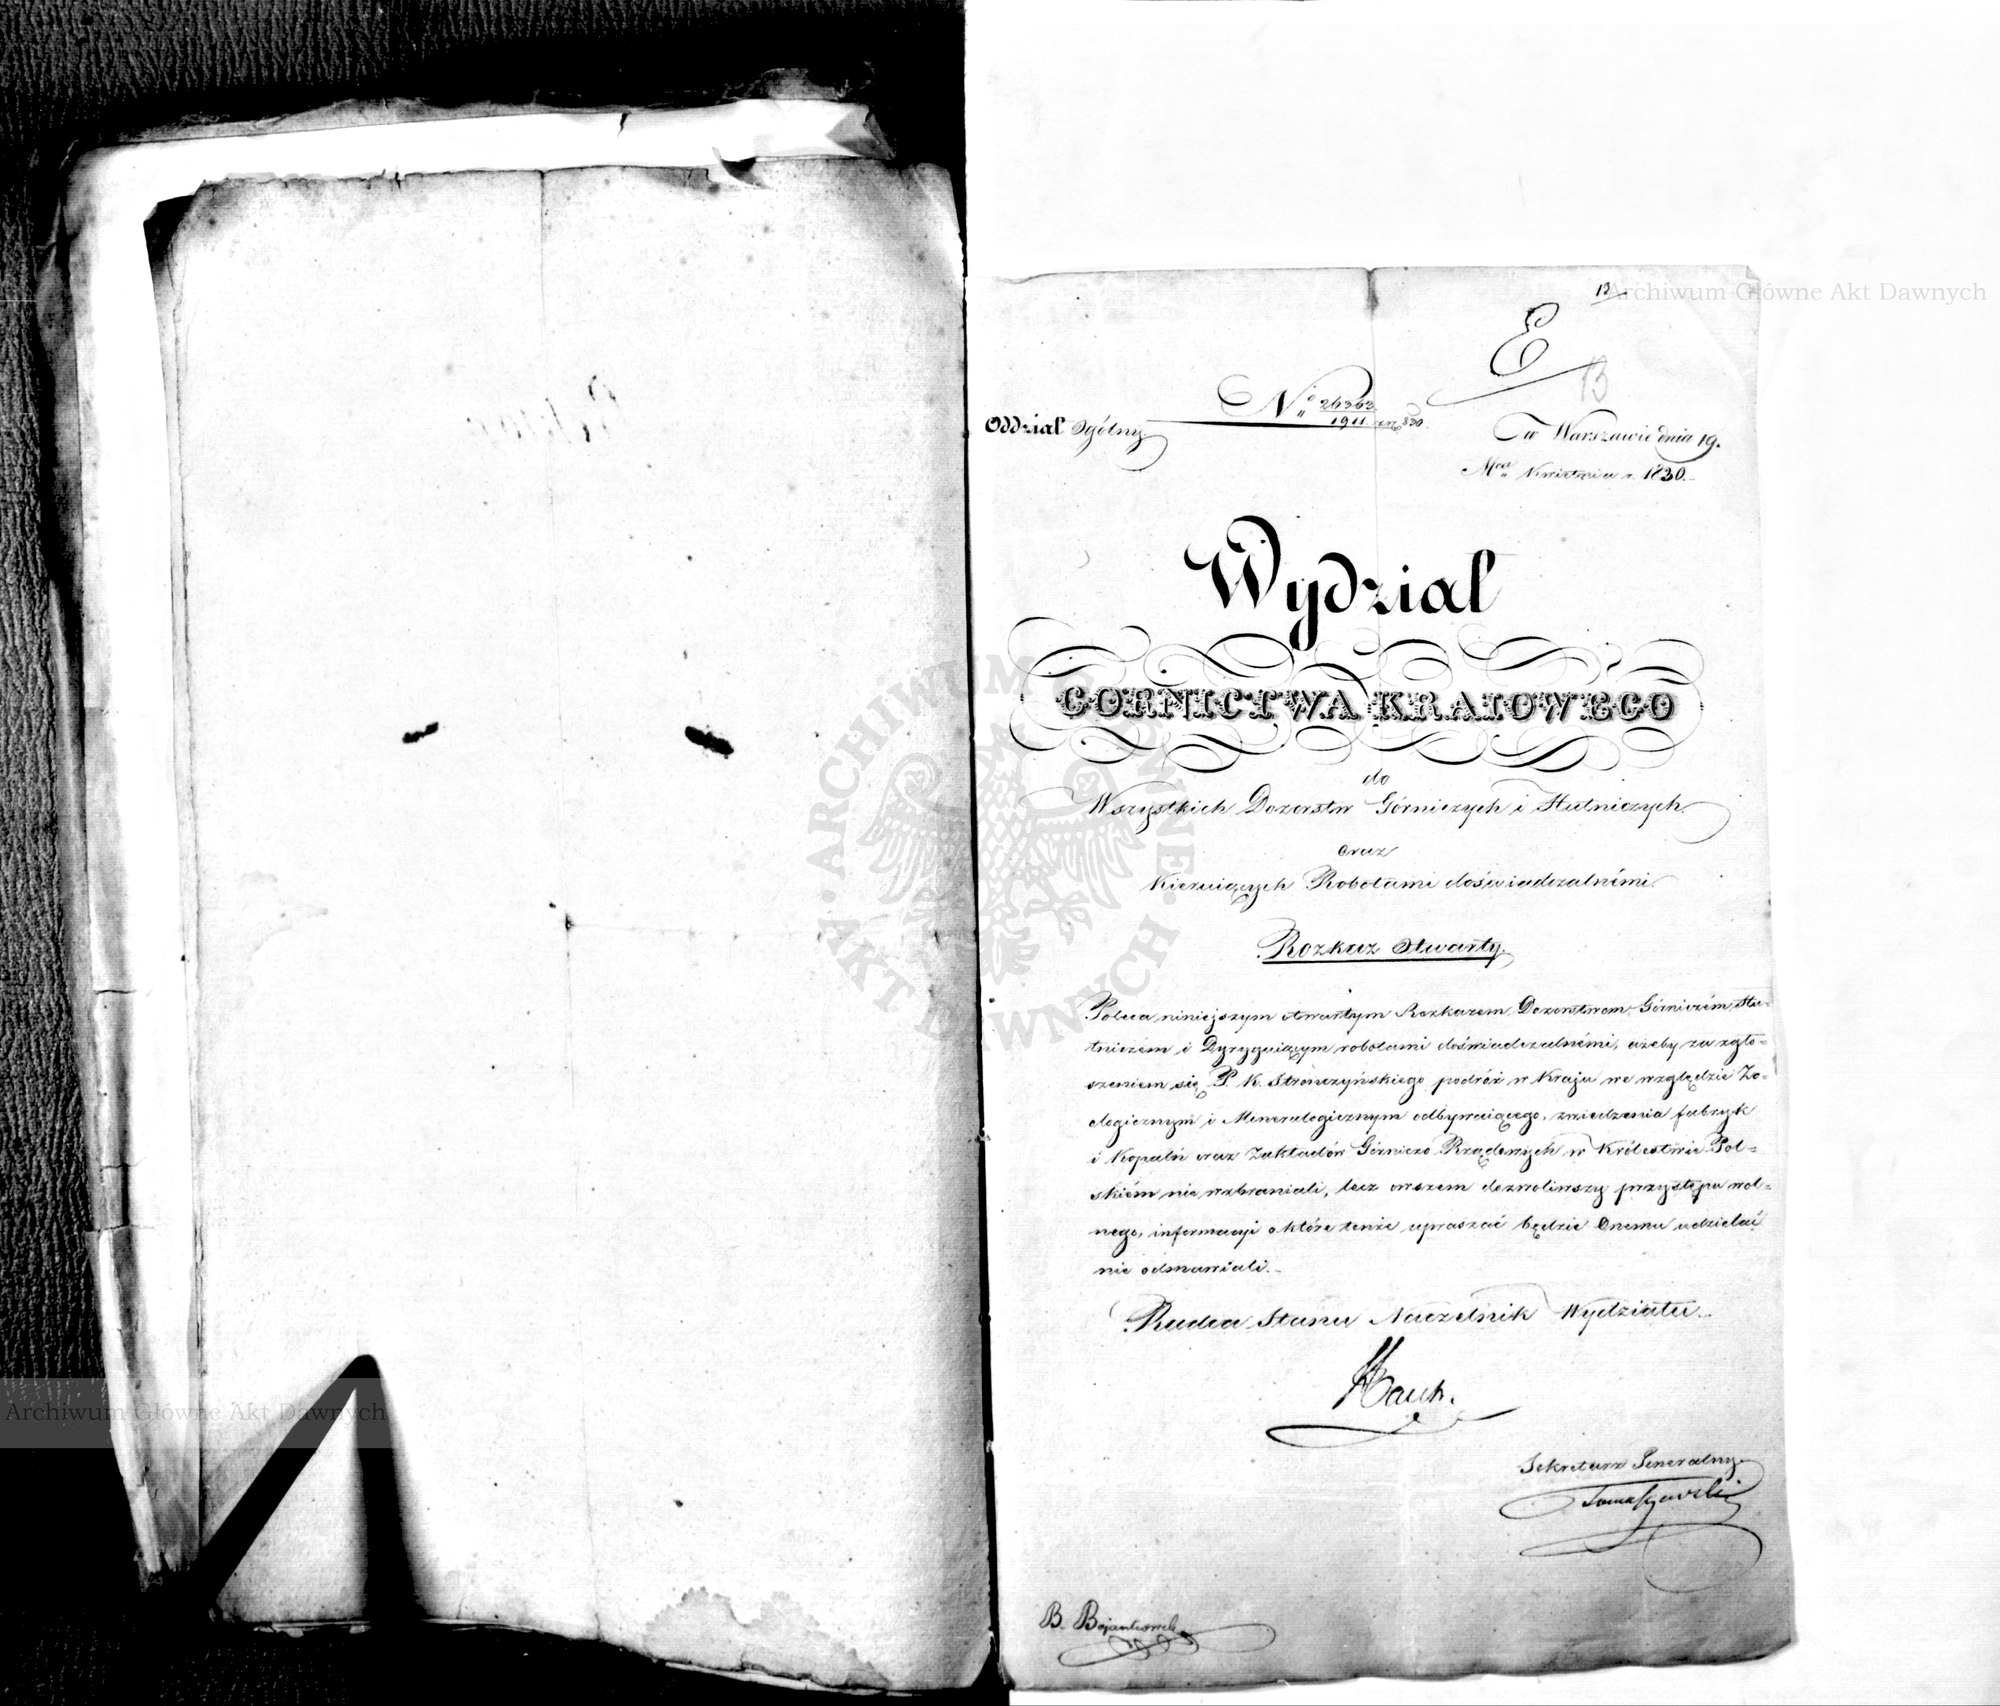 13
E
13
Nº 26363
1911 an. 830.
Oddział Ogólny
w Warszawie dnia 19.
Mca Kwietnia r. 1830.
Wydział
GORNICTWA KRAIOWEGO
do
Wszystkich Dozorstw Górniczych i Hutniczych
oraz
Kieruiących Robotami doświadczalnémi
Rozkaz Otwarty.
Poleca niniejszym otwartym Rozkazem Dozorstwom Górniczém Hu-
tniczém i Dyryguiącym robotami doświadczalnémi, ażeby za zgło-
szeniem się P. K. Stronczyńskiego podróż w Kraju we względzie Zo-
ologicznym i Mineralogicznym odbywaiącego, zwiedzenia fabryk
i Kopalń oraz Zakładów Górniczo Rządowych w Królestwie Pol-
skiém nie wzbraniali, lecz owszem dozwoliwszy przystępu wol-
nego, informacyi o które tenże upraszać będzie Onemu udzielać
nie odmawiali.
Radca Stanu Naczelnik Wydziału.
Hauk.
Sekretarz Generalny
Tomaszewski
B. Bojankowski
Archiwum Główne Akt Dawnych
Archiwum Główne Akt Dawnych